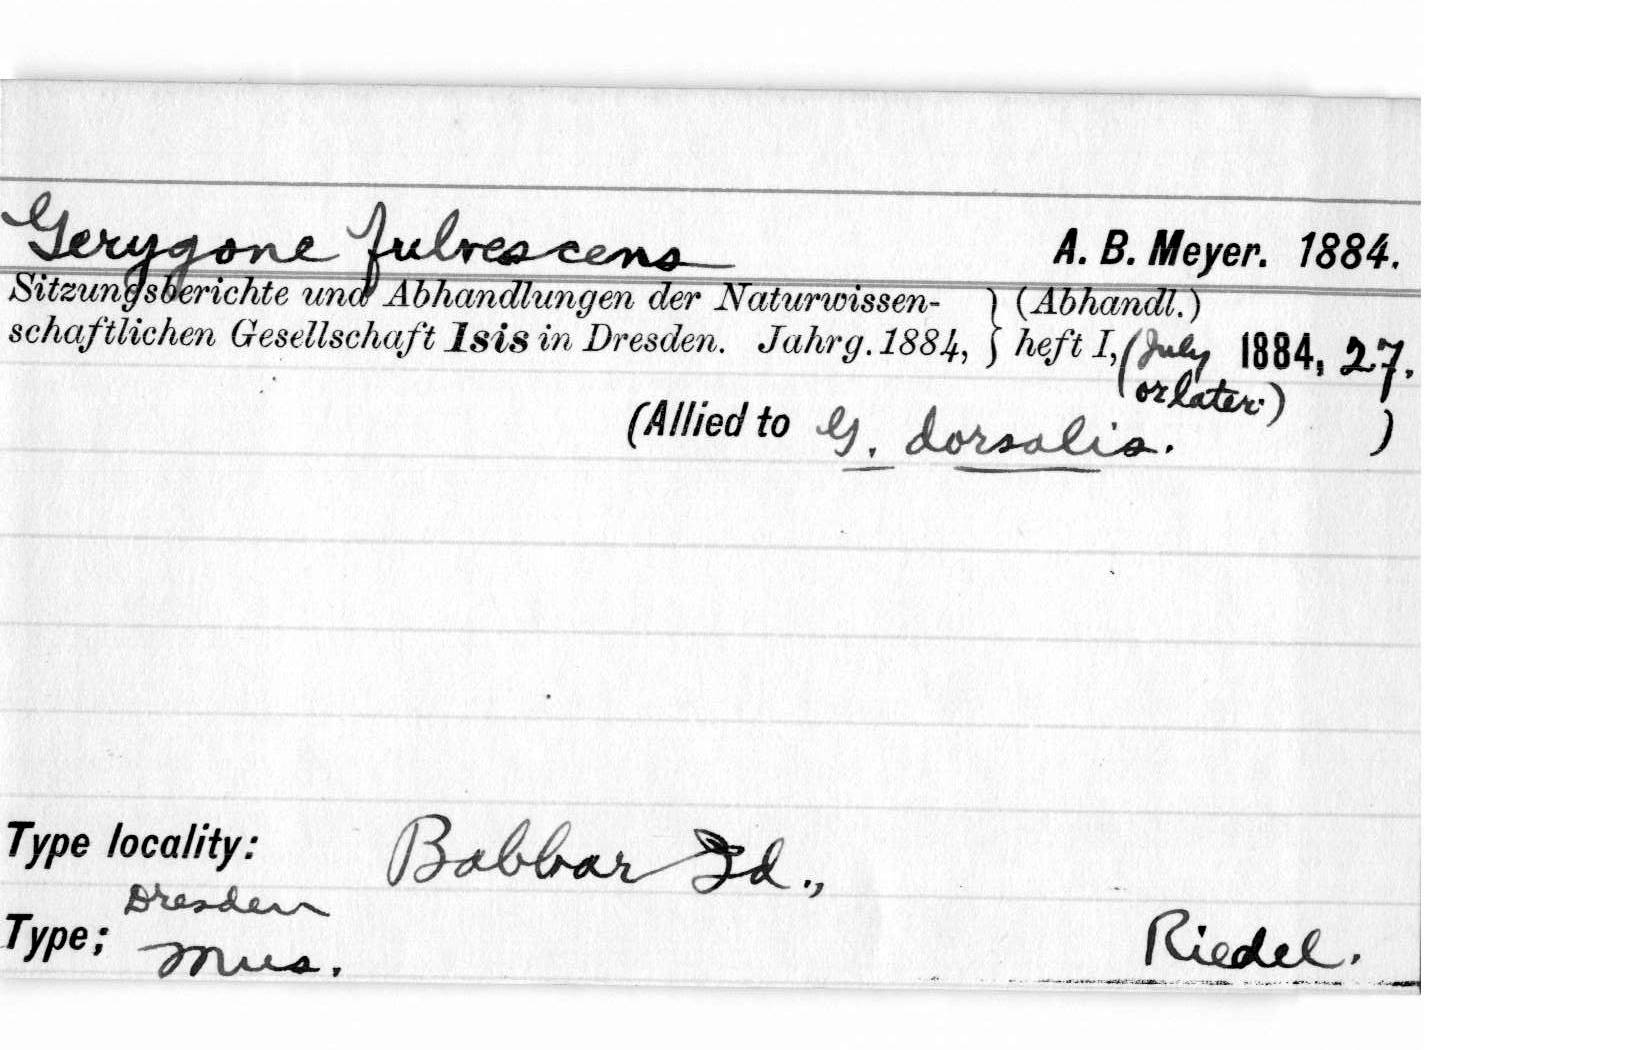 Gerygone fulvescens A. B. Meyer. 1884.
Sitzungsberichte und Abhandlungen der Naturwissen- } (Abhandl.)
schaftlichen Gesellschaft Isis in Dresden. Jahrg. 1884, } heft I, (July 1884, 27.
or later.)
(Allied to G. dorsalis. )
Type locality: Babbar Id.,
Dresden
Type; Mus. Riedel.